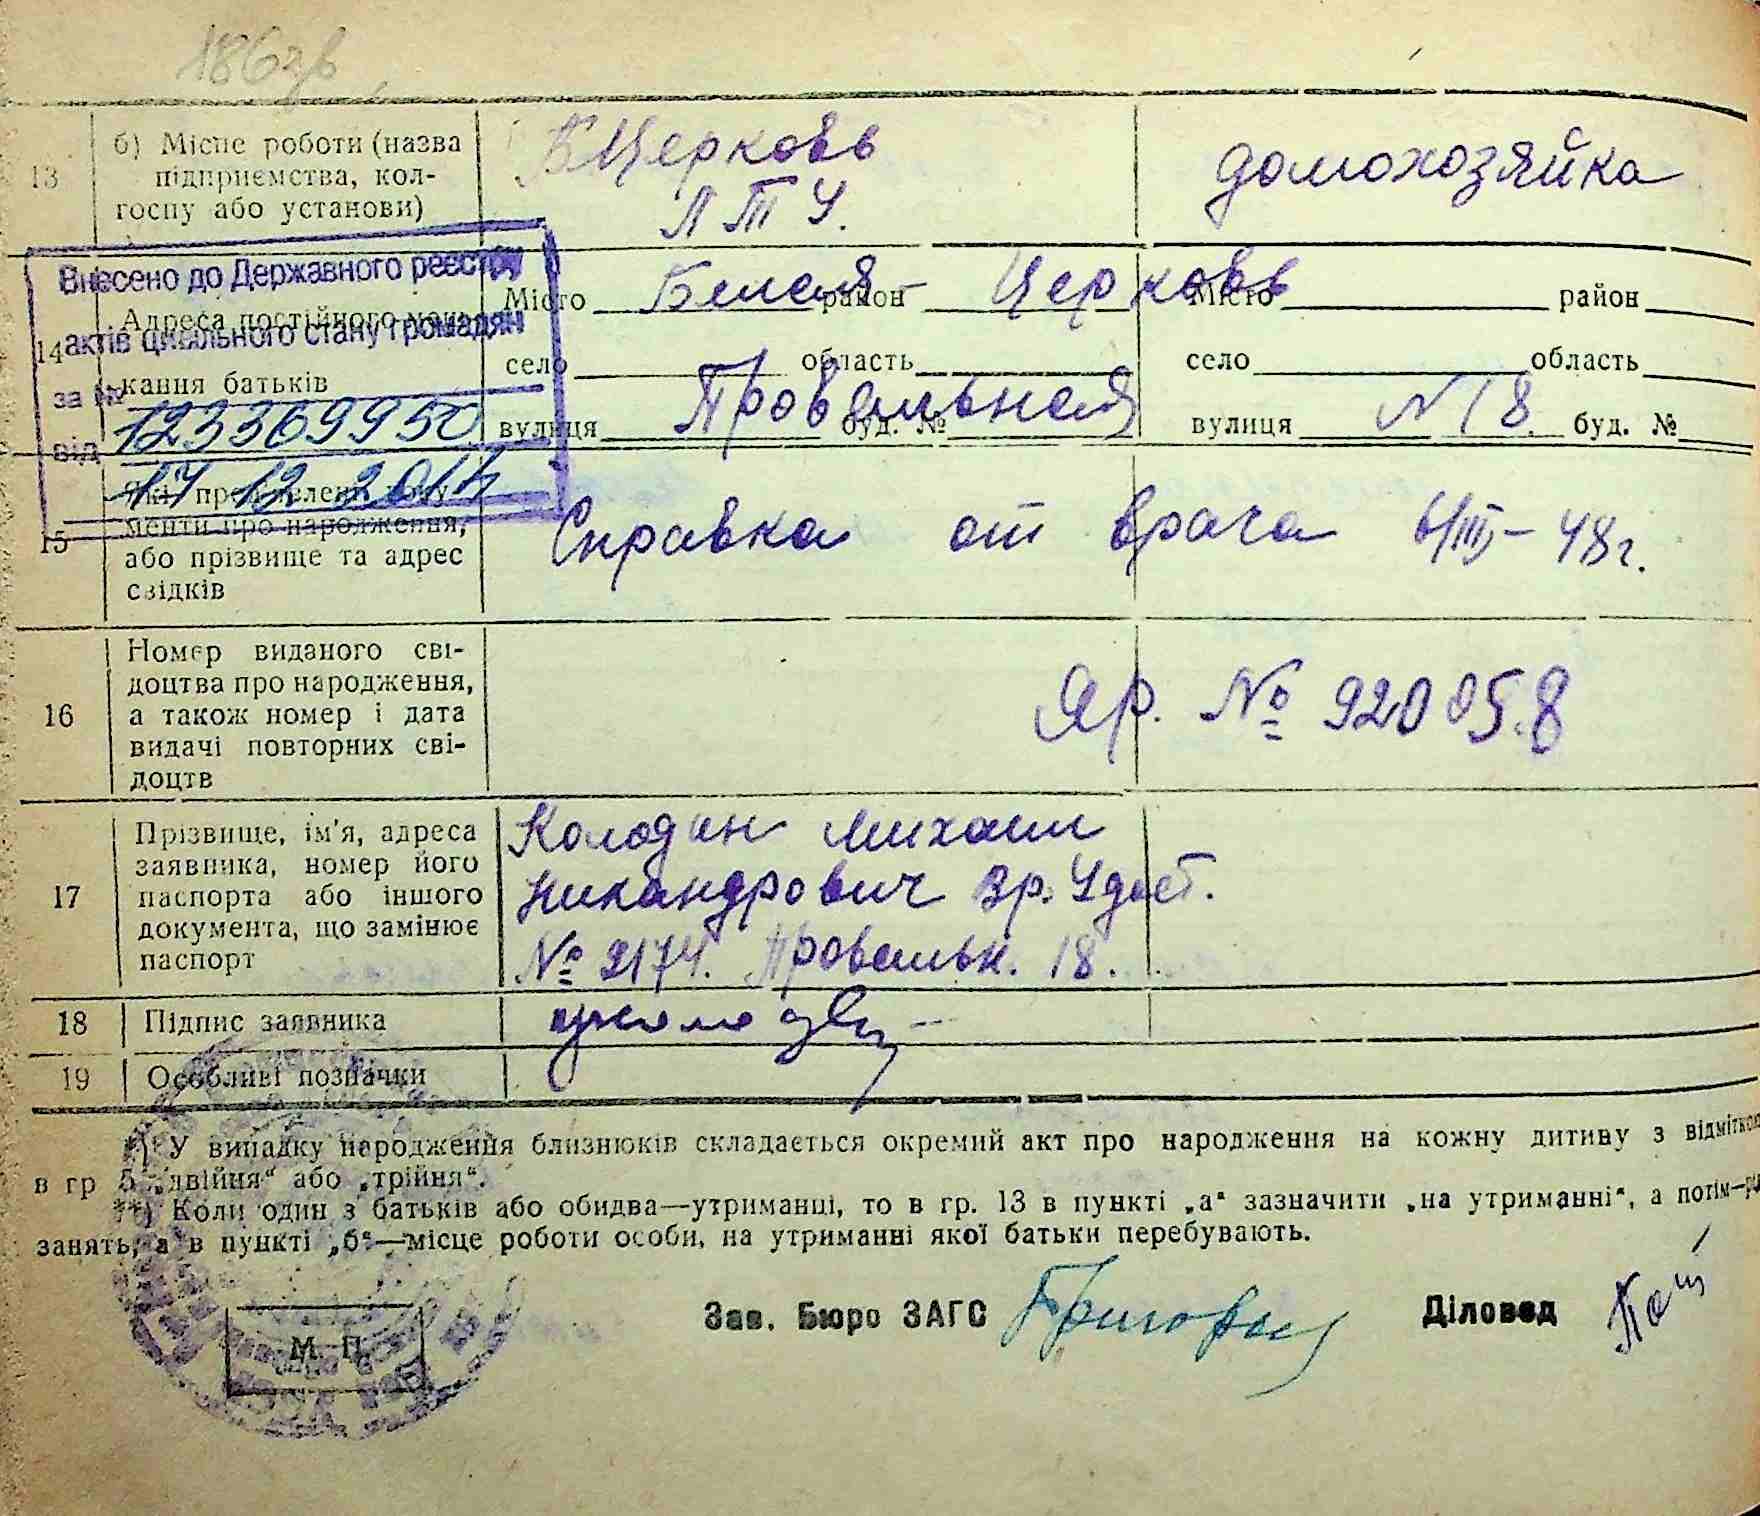 186зв
13
б) Місце роботи (назва
підприємства, кол-
госпу або установи)
Б Церковь
Л Т У.
домохозяйка
Внесено до Державного реєстру
актів цивільного стану громадян
за №
123369950
від
17 12 2014
14
Адреса постійного меш-
кання батьків
Місто Белая район Церковь Місто район
село область село область
вулиця Провальная буд. № вулиця N 18. буд. №
15
Які пред'явлені доку-
менти про народження,
або прізвище та адрес
свідків
Справка от врача 6/III - 48 г.
16
Номер виданого сві-
доцтва про народження,
а також номер і дата
видачі повторних сві-
доцтв
Яр. № 920058
17
Прізвище, ім'я, адреса
заявника, номер його
паспорта або іншого
документа, що замінює
паспорт
Колодин Михаил
Никандрович Вр. Удост.
№ 2174. Провальн. 18.
18 Підпис заявника
19 Особливі позначки
*) У випадку народження близнюків складається окремий акт про народження на кожну дитину з відміткою
в гр 5 „двійня“ або „трійня“.
**) Коли один з батьків або обидва—утриманці, то в гр. 13 в пункті „а“ зазначити „на утриманні“, а потім—рід
занять, а в пункті „б“—місце роботи особи, на утриманні якої батьки перебувають.
Зав. Бюро ЗАГС
Діловод
М. П.